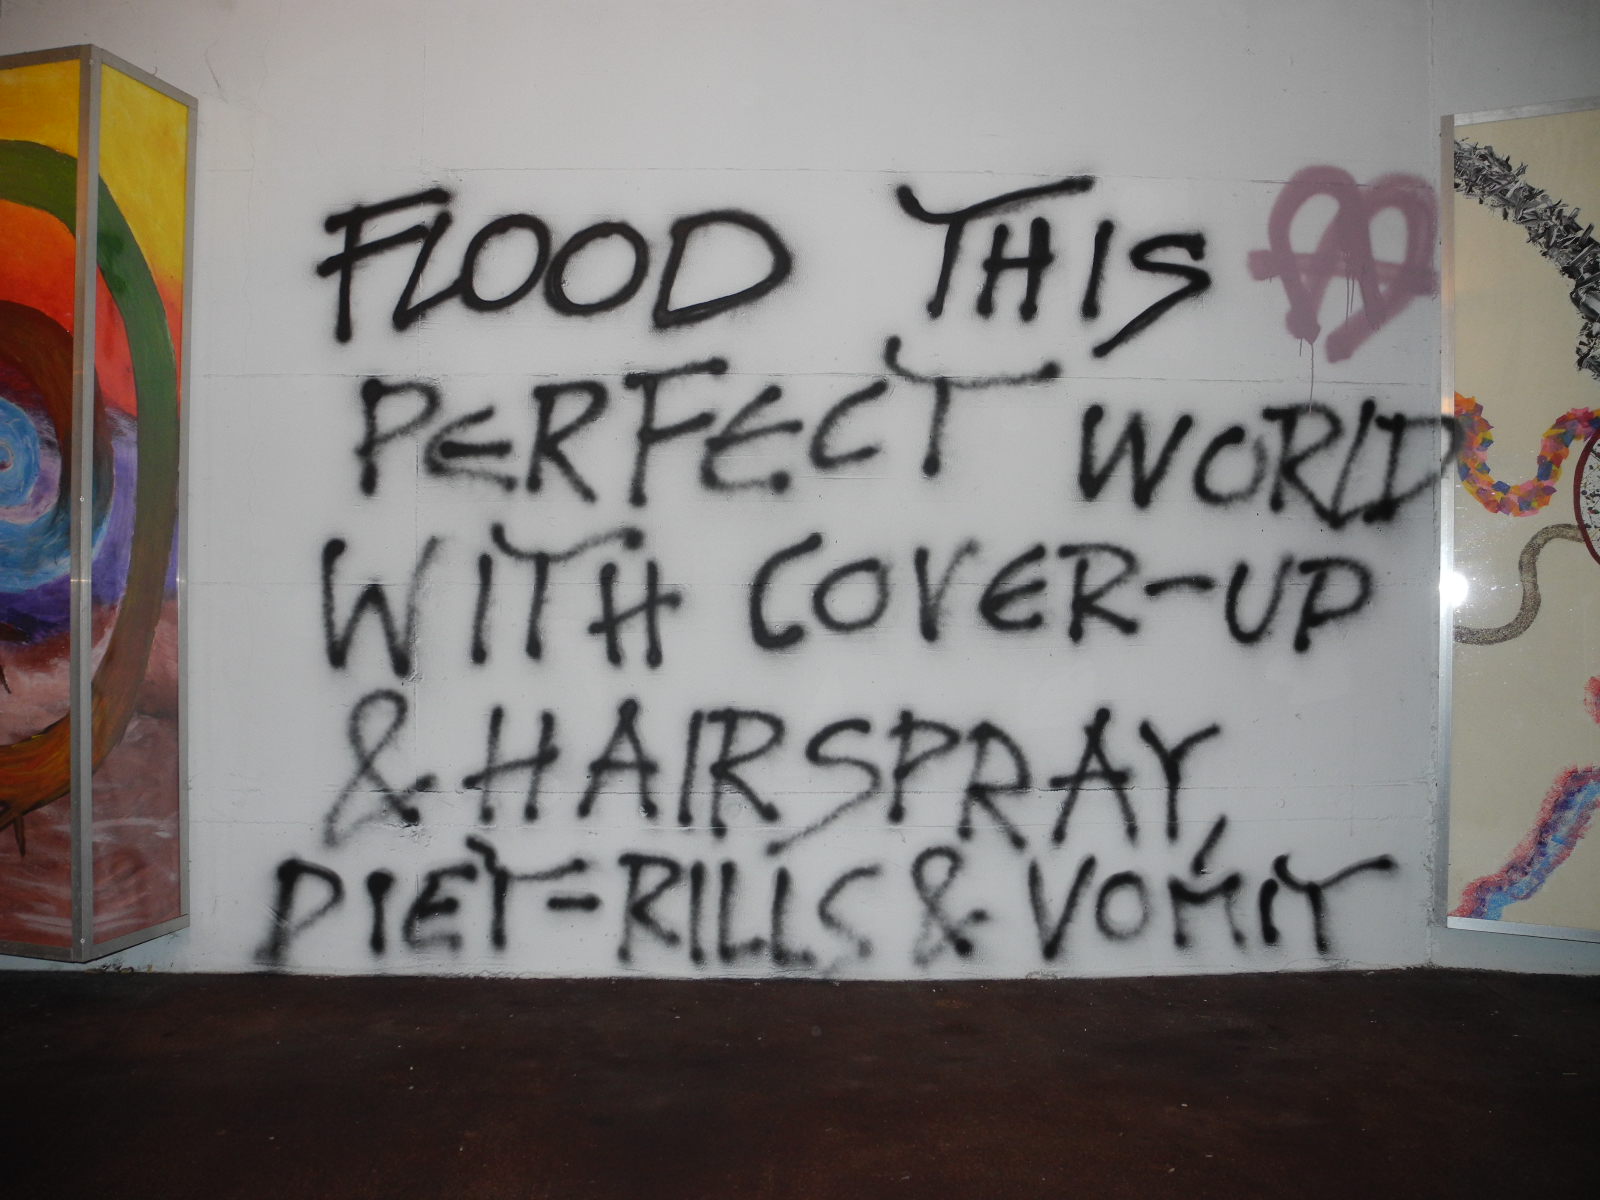 FLOOD THIS
PERFECT WORLD
WITH COVER-UP
& HAIRSPRAY,
DIET-RILLS & VOMIT